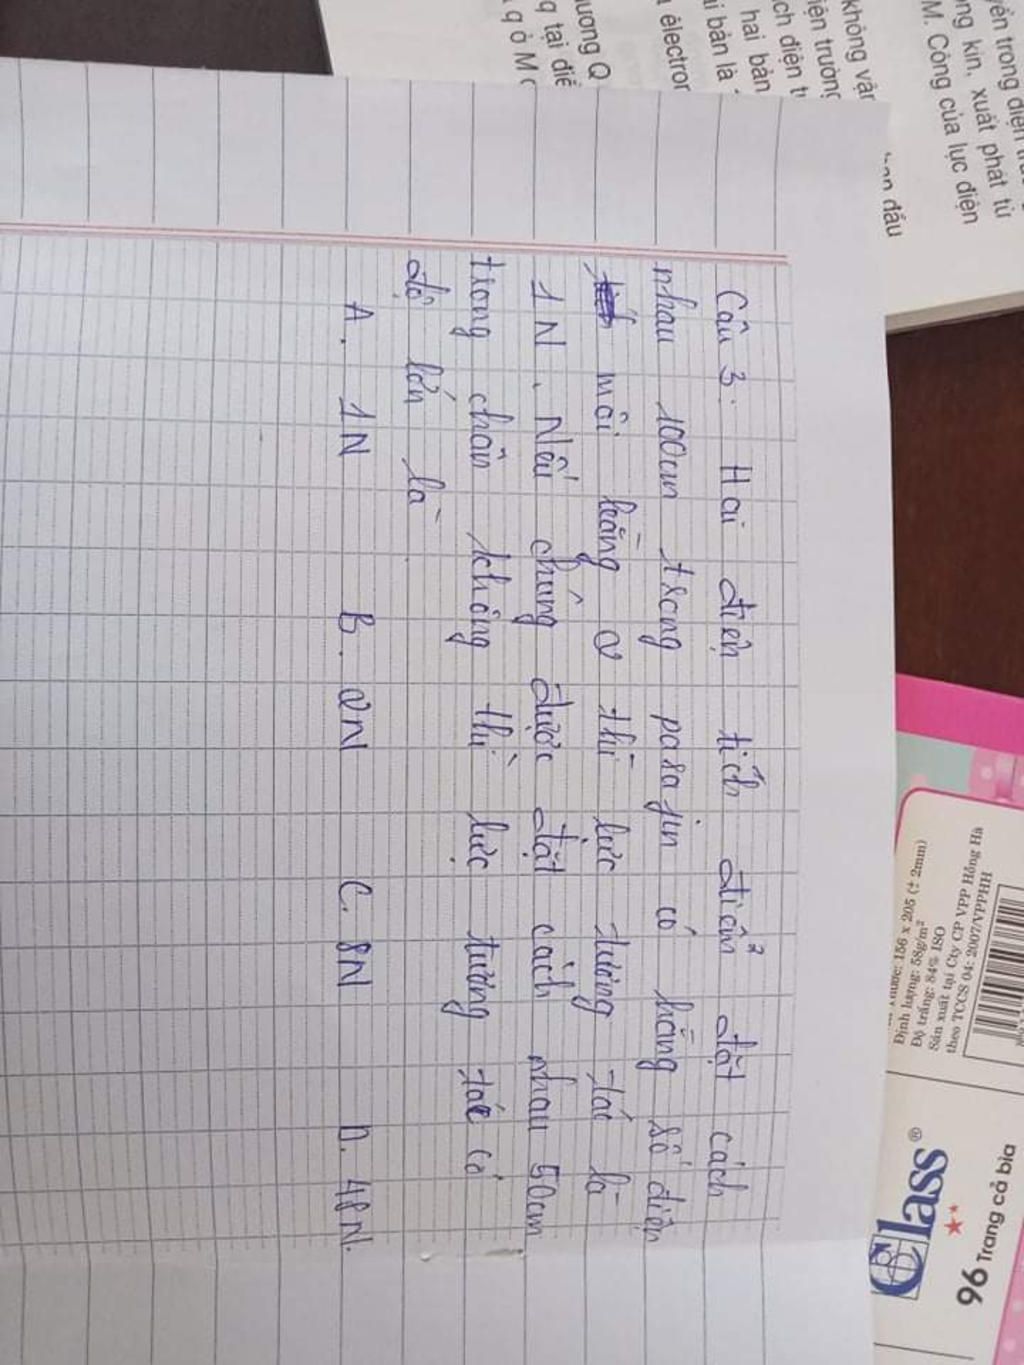 Câu 3: Hai điện tích điểm đặt cách
nhau 100cm trong parafin có hằng số điện
môi bằng 2 thì lực tương tác là
1N. Nếu chúng được đặt cách nhau 50cm
trong chân không thì lực tương tác có
độ lớn là
A. 1N B. 2N C. 8N D. 48N.
yển trong điện
ng kín, xuất phát từ
M. Công của lực điện
không
ện trường
ch điện
hai bản
i bản là
électron
ương Q
q tại
q ở M
ban đầu
thước: 156 x 205 (± 2mm)
Định lượng: 58g/m²
Độ trắng: 84% ISO
Sản xuất tại Cty CP VPP Hồng Hà
theo TCCS 04: 2007/VPPHH
Class®
96 Trang cả bìa